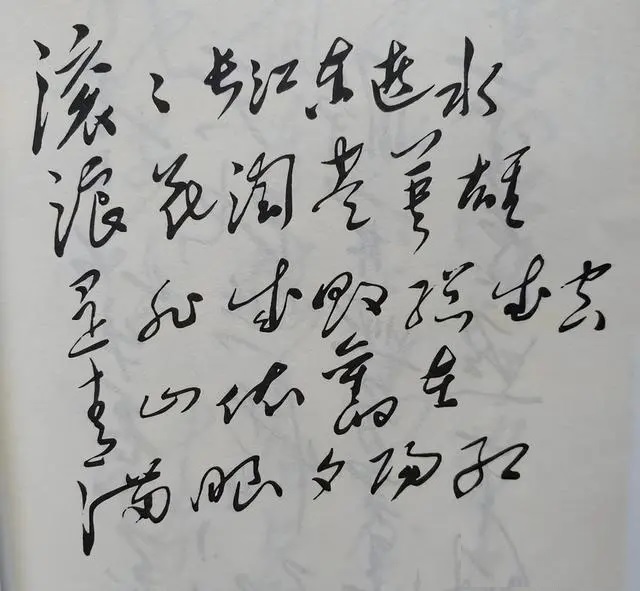 滚〻长江东逝水
浪花淘尽英雄
是非成败總成空
青山依舊在
满眼夕阳红